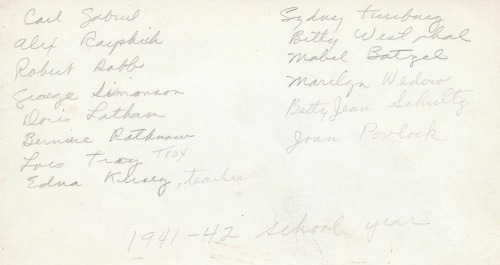 Carl Gabriel
Alex
Robert Dabb
George Simonson
Doris Latham
Bernice Rathnow
Lois Troy Trox
Edna Kersey, teacher
Sydney
Betty Westphal
Mabel Batzel
Marilyn Wedow
Betty Jean Schultz
Joan Povlock
1941-42 school year